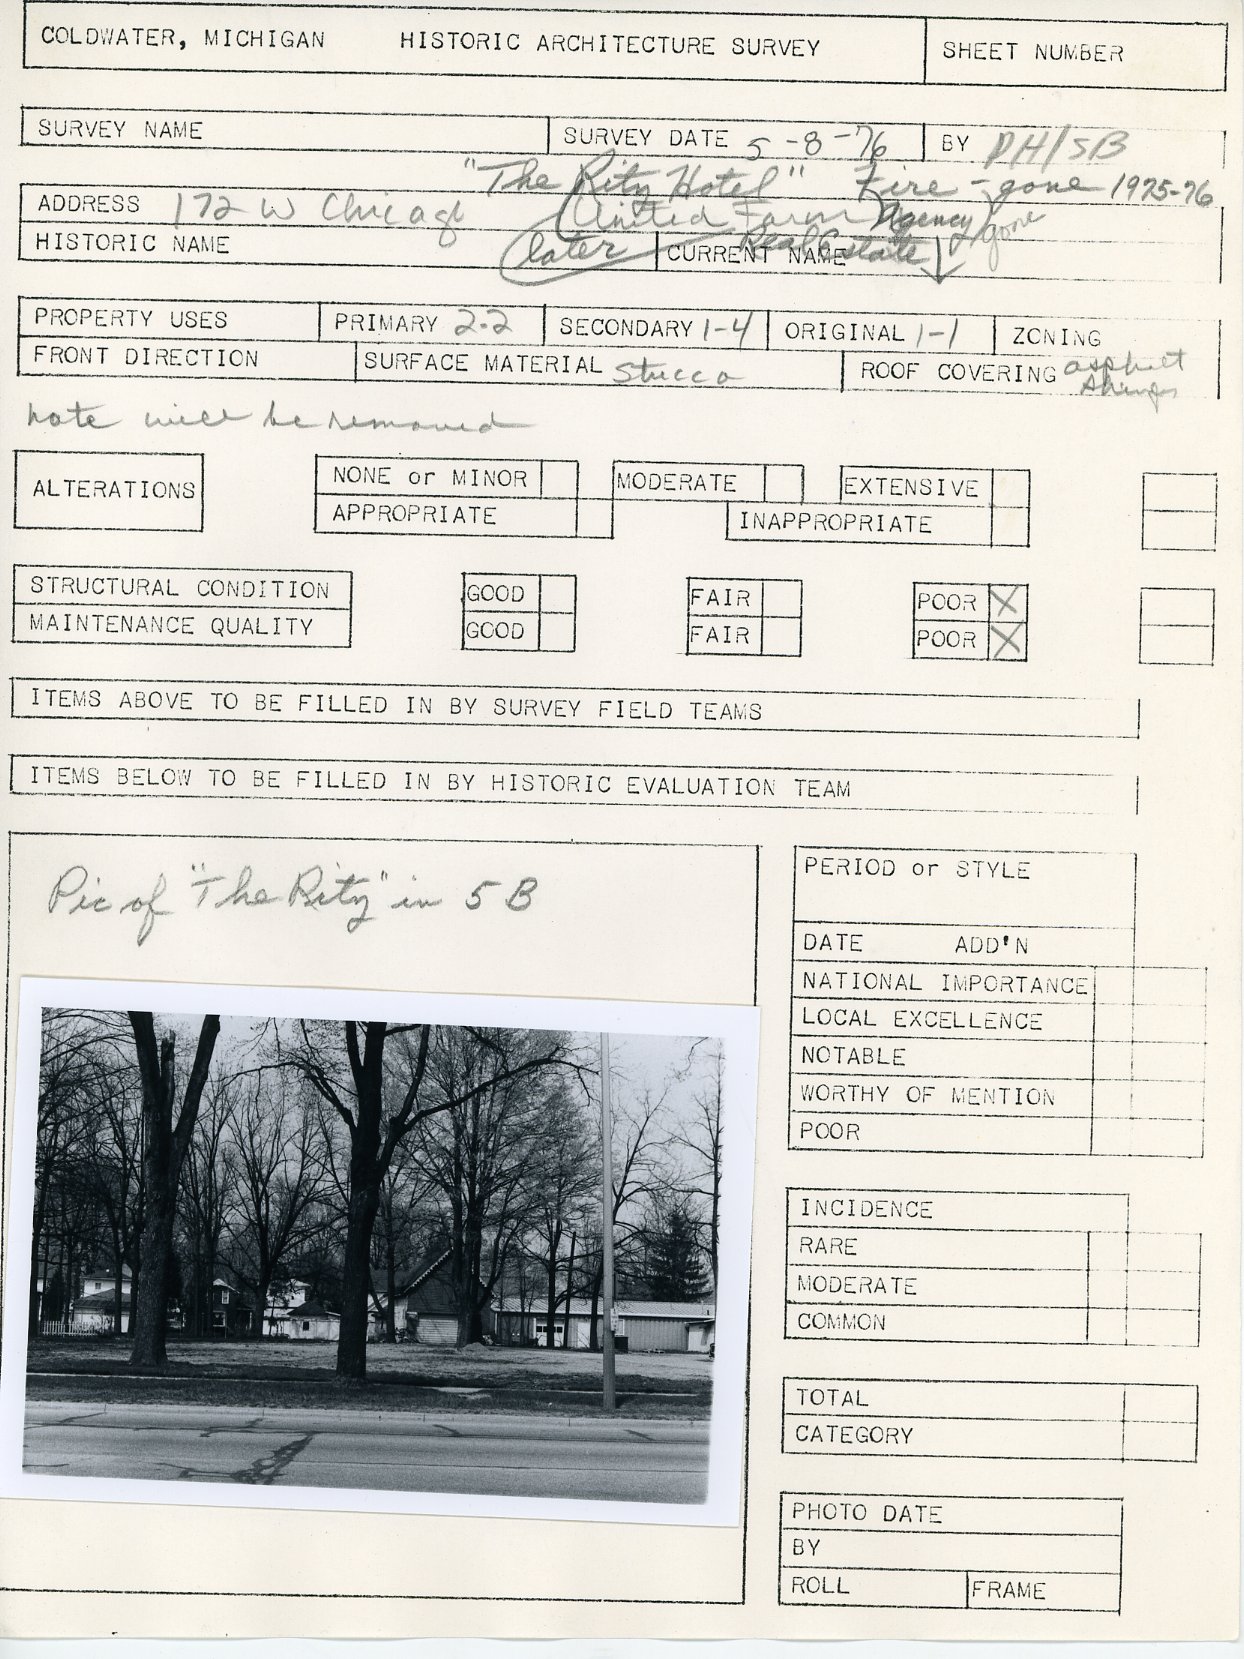 COLDWATER, MICHIGAN HISTORIC ARCHITECTURE SURVEY SHEET NUMBER
SURVEY NAME SURVEY DATE 5-8-76 BY PH/SB
"The Ritz Hotel" Fire - gone 1975-76
ADDRESS 172 W Chicago United Farm Agency/gone
HISTORIC NAME later Real Estate CURRENT NAME
PROPERTY USES PRIMARY 2-2 SECONDARY 1-4 ORIGINAL 1-1 ZONING
FRONT DIRECTION SURFACE MATERIAL Stucco ROOF COVERING asphalt
note will be removed
ALTERATIONS NONE or MINOR MODERATE EXTENSIVE
APPROPRIATE INAPPROPRIATE
STRUCTURAL CONDITION GOOD FAIR POOR X
MAINTENANCE QUALITY GOOD FAIR POOR X
ITEMS ABOVE TO BE FILLED IN BY SURVEY FIELD TEAMS
ITEMS BELOW TO BE FILLED IN BY HISTORIC EVALUATION TEAM
Pic of "The Ritz" in 5 B
PERIOD or STYLE
DATE ADD'N
NATIONAL IMPORTANCE
LOCAL EXCELLENCE
NOTABLE
WORTHY OF MENTION
POOR
INCIDENCE
RARE
MODERATE
COMMON
TOTAL
CATEGORY
PHOTO DATE
BY
ROLL FRAME